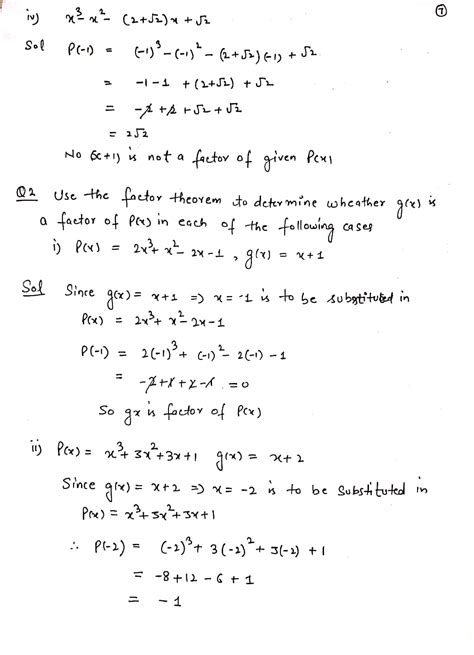 ⑦
iv) x³- x²- (2+√2)x + √2
Sol P(-1) = (-1)³ - (-1)² - (2+√2)(-1) + √2
= -1-1 + (2+√2) + √2
= -2 + 2 + √2 + √2
= 2√2
No (x+1) is not a factor of given P(x)
Q2 Use the factor theorem to determine wheather g(x) is
a factor of P(x) in each of the following cases
i) P(x) = 2x³+ x²- 2x-1 , g(x) = x+1
Sol Since g(x) = x+1 => x = -1 is to be substituted in
P(x) = 2x³+ x²- 2x-1
P(-1) = 2(-1)³+ (-1)²- 2(-1) - 1
= -2+1+2-1 = 0
So gx is factor of P(x)
ii) P(x) = x³+ 3x²+3x+1 g(x) = x+2
Since g(x) = x+2 => x = -2 is to be substituted in
P(x) = x³+3x²+3x+1
∴ P(-2) = (-2)³+ 3(-2)²+ 3(-2) + 1
= -8+12 - 6 + 1
= - 1